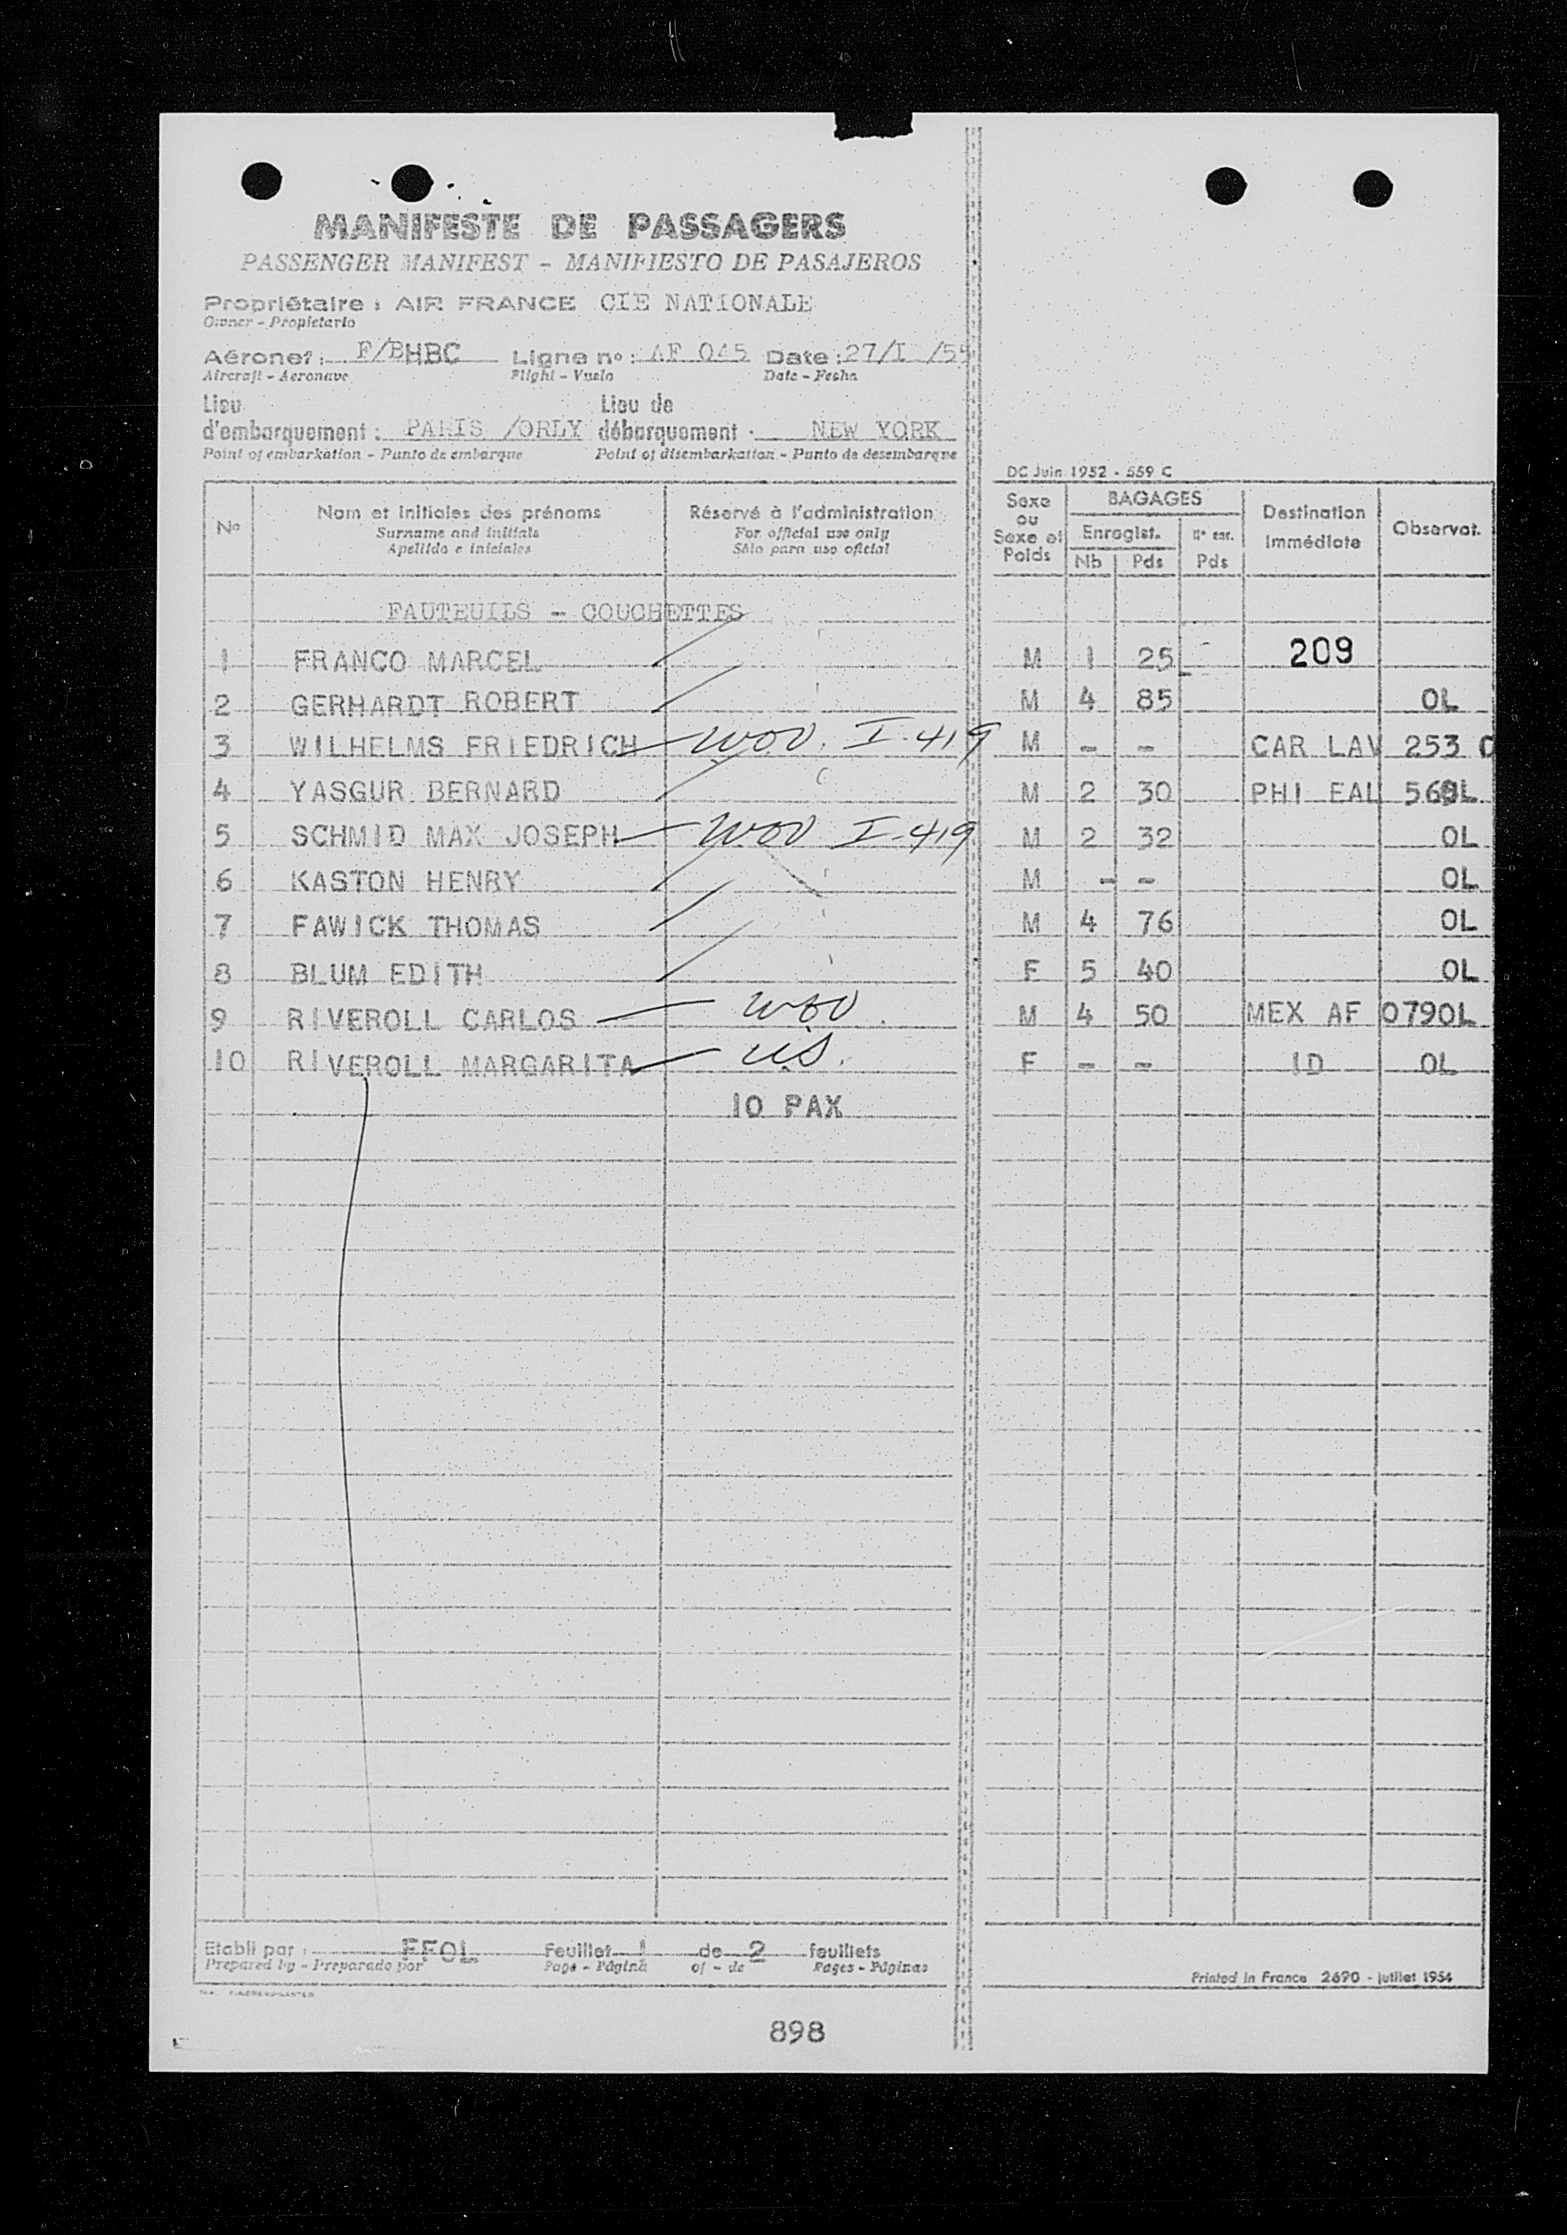 MANIFESTE DE PASSAGERS
PASSENGER MANIFEST - MANIFIESTO DE PASAJEROS
Propriétaire : AIR FRANCE CIE NATIONALE
Owner - Propietario
Aéronef : F/BHBC Ligne nº : AF 045 Date : 27/I /55
Aircraft - Aeronave Flight - Vuelo Date - Fecha
Lieu d'embarquement : PARIS /ORLY Lieu de débarquement : NEW YORK
Point of embarkation - Punto de embarque Point of disembarkation - Punto de desembarque
DC Juin 1952 - 559 C
Nº Nom et initiales des prénoms Réservé à l'administration Sexe ou Sexe et Poids BAGAGES Destination Immédiate Observat.
Surname and initials For official use only Enregist. Nº enr.
Apellido e iniciales Sólo para uso oficial Nb Pds Pds
FAUTEUILS - COUCHETTES
1 FRANCO MARCEL M 1 25 - 209
2 GERHARDT ROBERT M 4 85 OL
3 WILHELMS FRIEDRICH WOV. I-419 M - - CAR LAV 253 O
4 YASGUR BERNARD M 2 30 PHI EAL OL
5 SCHMID MAX JOSEPH WOV I-419 M 2 32 OL
6 KASTON HENRY M - - OL
7 FAWICK THOMAS M 4 76 OL
8 BLUM EDITH F 5 40 OL
9 RIVEROLL CARLOS WOV M 4 50 MEX AF 079OL
10 RIVEROLL MARGARITA US. F - - ID OL
10 PAX
Etabli par : FFOL Feuillet 1 de 2 feuillets
Prepared by - Preparado por Page - Página of - de Pages - Páginas
Printed in France 2690 - juillet 1954
898